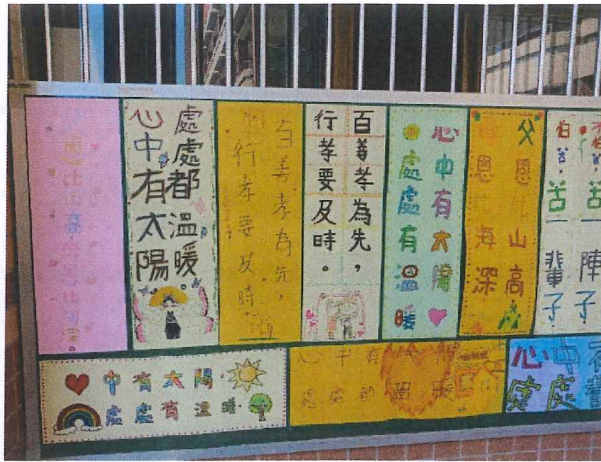 心中有太陽
處處都溫暖。
百善孝為先，
行孝要及時
百善孝為先，
行孝要及時。
心中有太陽
處處有溫暖
父恩山高
恩海深
怕苦，苦一陣子
怕苦，苦一輩子
中有太陽
處處有溫暖
心中有太陽
處處
心中
處處